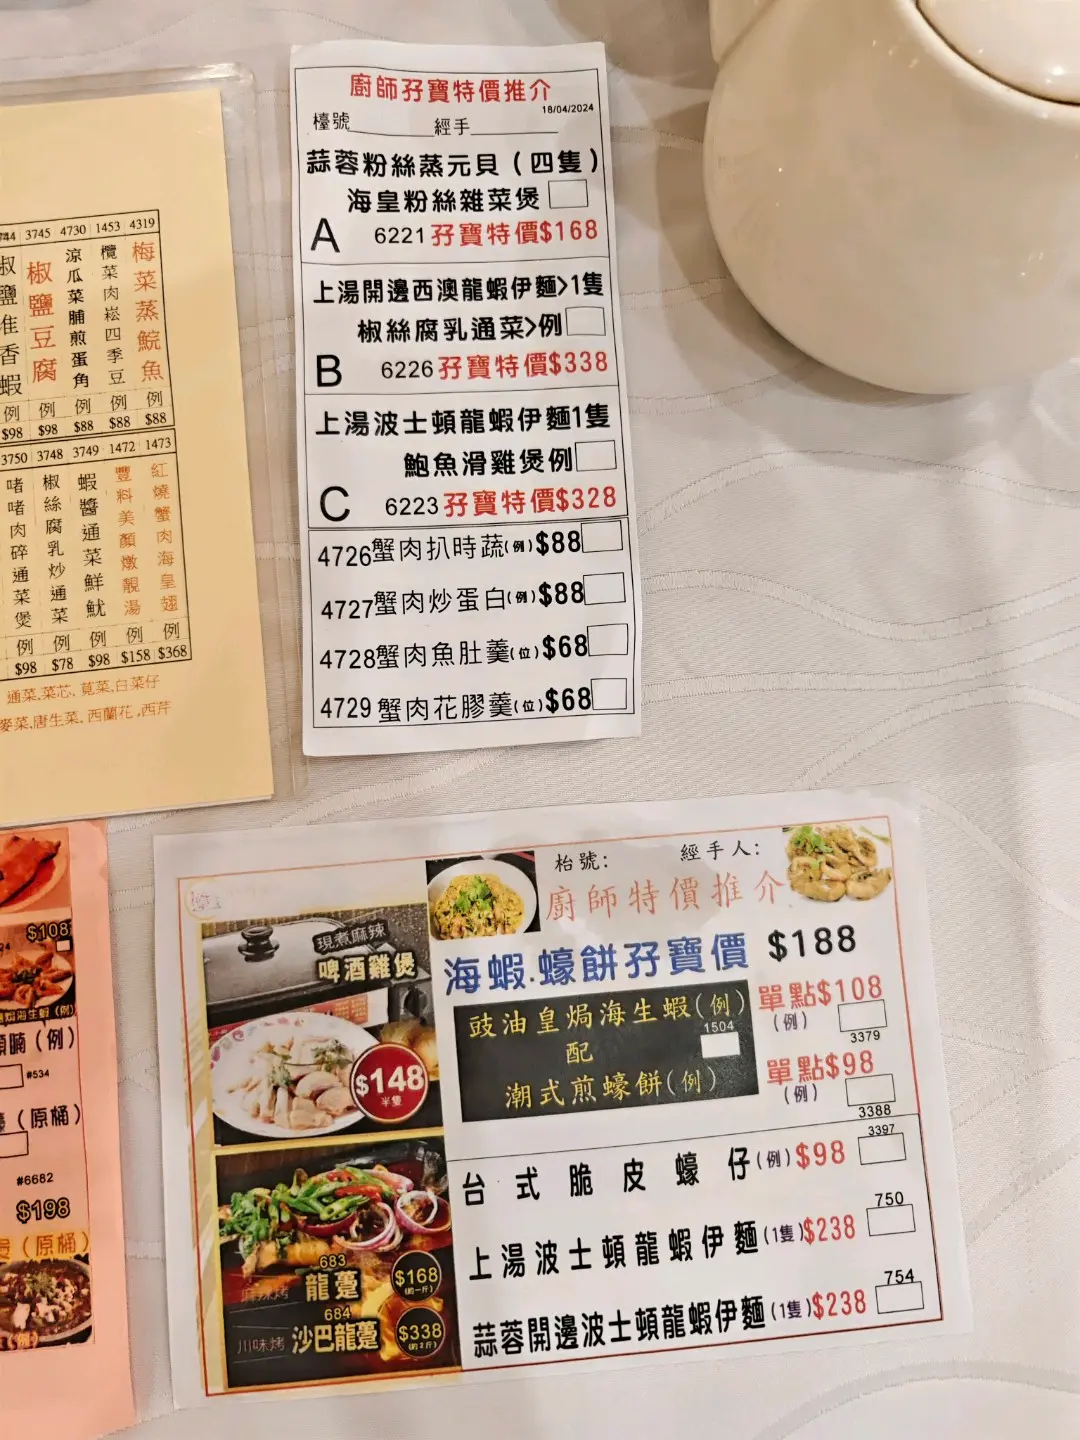 廚師孖寶特價推介
18/04/2024
檯號 經手
蒜蓉粉絲蒸元貝(四隻)
海皇粉絲雜菜煲
A 6221 孖寶特價$168
上湯開邊西澳龍蝦伊麵>1隻
椒絲腐乳通菜>例
B 6226 孖寶特價$338
上湯波士頓龍蝦伊麵1隻
鮑魚滑雞煲例
C 6223 孖寶特價$328
4726蟹肉扒時蔬(例)$88
4727蟹肉炒蛋白(例)$88
4728蟹肉魚肚羹(位)$68
4729 蟹肉花膠羹(位)$68
744 3745 4730 1453 4319
梅菜蒸鯇魚
欖菜肉崧四季豆
涼瓜菜脯煎蛋角
椒鹽豆腐
椒鹽
香蝦
例 例 例 例 例
$98 $98 $88 $88 $88
3750 3748 3749 1472 1473
紅燒蟹肉海皇翅
豐料美顏燉靚湯
蝦醬通菜鮮魷
椒絲腐乳炒通菜
啫啫肉碎通菜煲
例 例 例 例 例
$98 $78 $98 $158 $368
通菜,菜芯,莧菜,白菜仔
麥菜,唐生菜,西蘭花,西芹
$108
海生蝦(例)
(例)
#534
(原桶)
#6682
$198
(原桶)
(例)
枱號: 經手人:
廚師特價推介
海蝦.蠔餅孖寶價 $188
豉油皇焗海生蝦(例)
1504
配
潮式煎蠔餅(例)
單點$108
(例)
3379
單點$98
(例)
3388
3397
台式脆皮蠔仔(例)$98
750
上湯波士頓龍蝦伊麵(1隻)$238
754
蒜蓉開邊波士頓龍蝦伊麵(1隻)$238
現煮麻辣
啤酒雞煲
$148
半隻
683
麻辣烤 龍躉
$168
(約一斤)
684
川味烤 沙巴龍躉
$338
(約2斤)